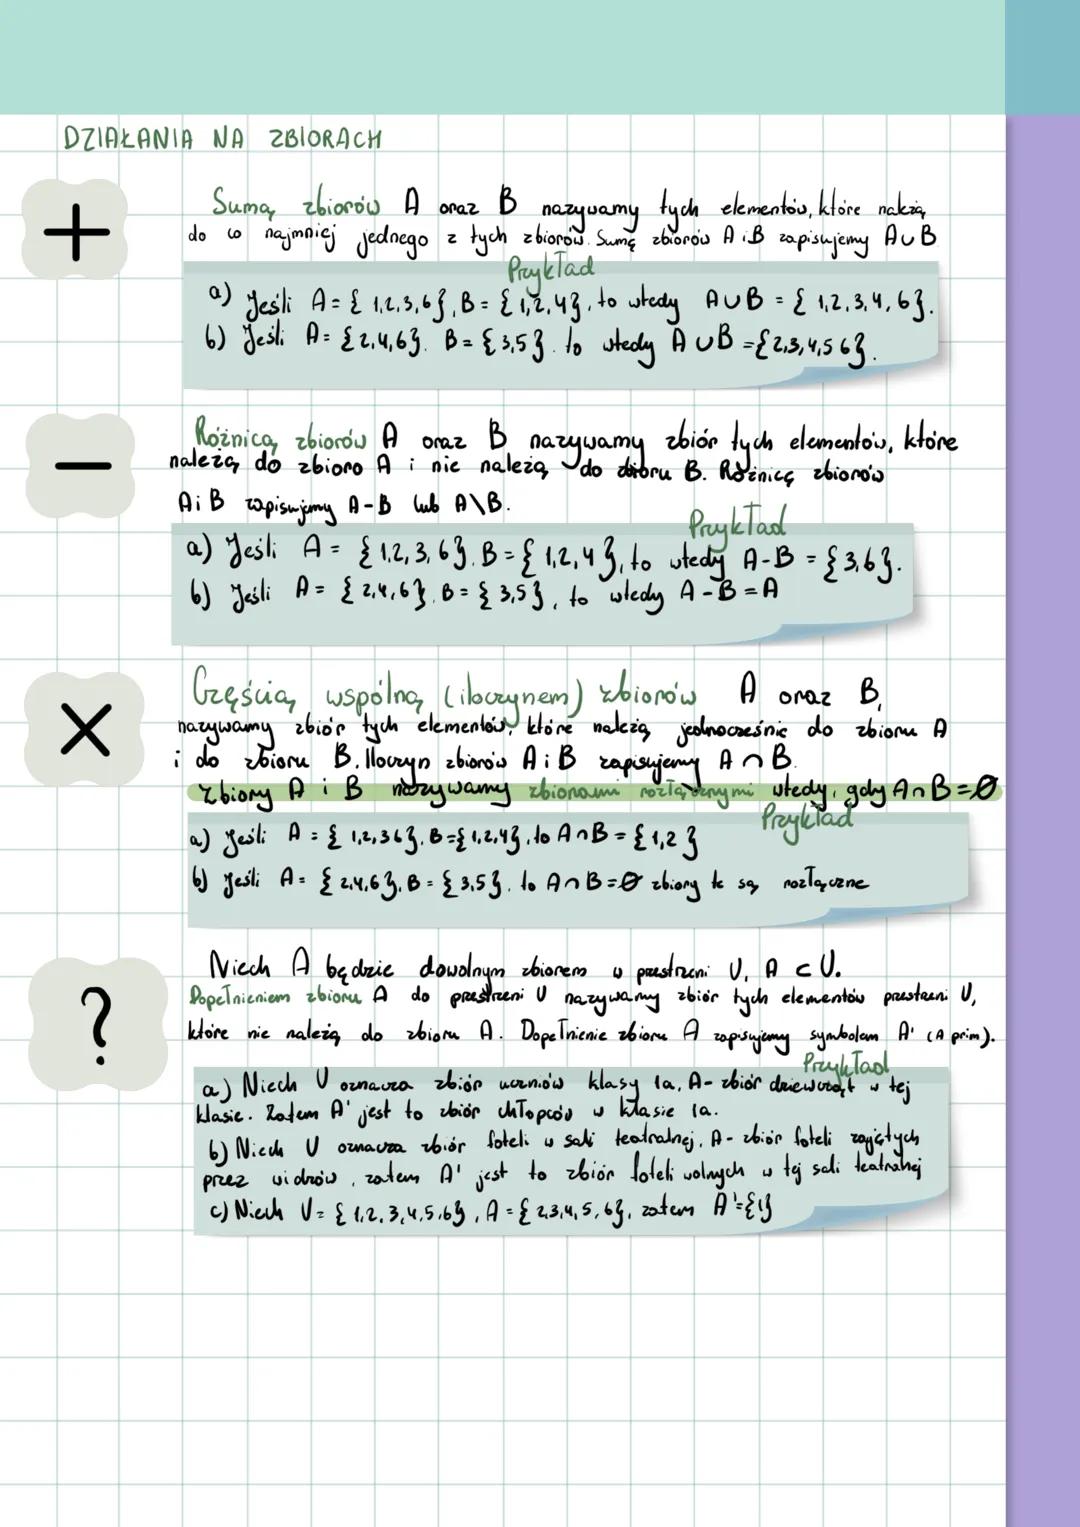 DZIAŁANIA NA ZBIORACH
+
Sumą zbiorów A oraz B nazywamy tych elementów, które należą
do co najmniej jednego z tych zbiorów. Sumę zbiorów A i B zapisujemy A∪B
Przykład
a) Jeśli A = { 1,2,3,6}, B = { 1,2,4}, to wtedy A∪B = { 1,2,3,4,6}.
b) Jeśli A = {2,4,6}. B = {3,5}. to wtedy A∪B = {2,3,4,5 6}.
−
Różnicą zbiorów A oraz B nazywamy zbiór tych elementów, które
należą do zbioro A i nie należą do zbioru B. Różnicę zbiorów
A i B zapisujemy A-B lub A\B.
Przykład
a) Jeśli A = { 1,2,3,6}. B = { 1,2,4}, to wtedy A-B = {3,6}.
b) Jeśli A = {2,4,6}. B = {3,5}, to wtedy A-B = A
×
Częścią wspólną (iloczynem) zbiorów A oraz B,
nazywamy zbiór tych elementów, które należą jednocześnie do zbioru A
i do zbioru B. Iloczyn zbiorów A i B zapisujemy A∩B.
Zbiory A i B nazywamy zbiorami rozłącznymi wtedy, gdy A∩B=Ø
Przykład
a) Jeśli A = { 1,2,3 6}, B={ 1,2,4}, to A∩B = {1,2}
b) Jeśli A = {2,4,6}, B = {3,5}. to A∩B=Ø zbiory te są rozłączne
?
Niech A będzie dowolnym zbiorem w przestrzeni U, A ⊂ U.
Dopełnieniem zbioru A do przestrzeni U nazywamy zbiór tych elementów przestrzeni U,
które nie należą do zbioru A. Dopełnienie zbioru A zapisujemy symbolem A' (A prim).
Przykład
a) Niech U oznacza zbiór uczniów klasy 1a, A- zbiór dziewcząt w tej
klasie. Zatem A' jest to zbiór chłopców w klasie 1a.
b) Niech U oznacza zbiór foteli w sali teatralnej, A- zbiór foteli zajętych
przez widzów, zatem A' jest to zbiór foteli wolnych w tej sali teatralnej
c) Niech U = { 1,2,3,4,5,6}, A = {2,3,4,5,6}, zatem A'={1}